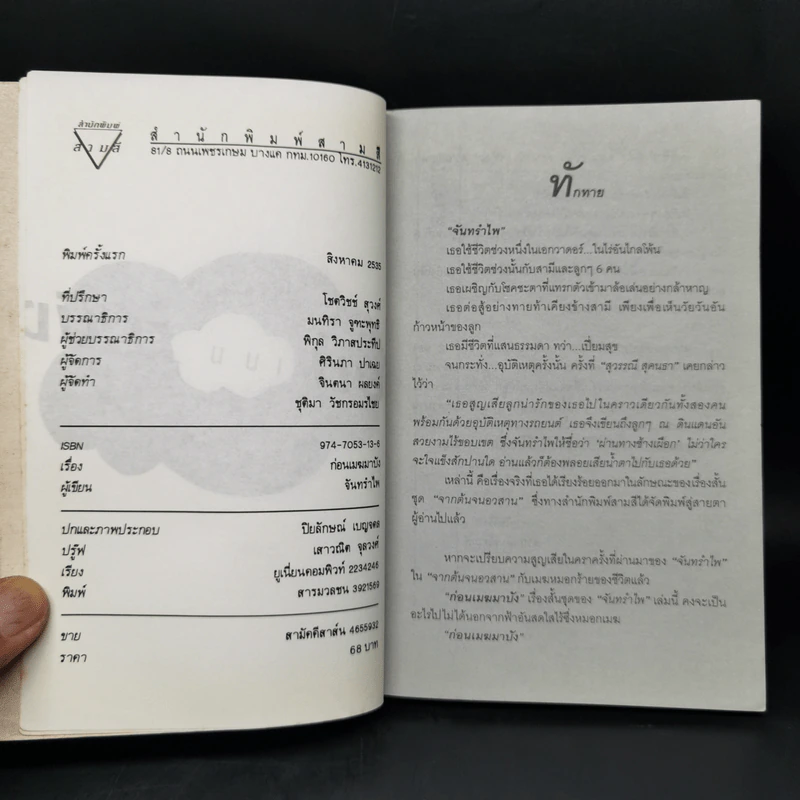 สำนักพิมพ์
สามสี
สำนักพิมพ์สามสี
81/8 ถนนเพชรเกษม บางแค กทม.10160 โทร.4131212
พิมพ์ครั้งแรก สิงหาคม 2535
ที่ปรึกษา โชติวิชช์ สุวงศ์
บรรณาธิการ มนทิรา จูฑะพุทธิ
ผู้ช่วยบรรณาธิการ พิกุล วิภาสประทีป
ผู้จัดการ ศิรินภา ปาเฉย
ผู้จัดทำ จินตนา ผลยงค์
ชุติมา วัชกรอมรไชย
ISBN 974-7053-13-6
เรื่อง ก่อนเมฆมาบัง
ผู้เขียน จันทรำไพ
ปกและภาพประกอบ ปิยลักษณ์ เบญจดล
ปรู๊ฟ เสาวณิต จุลวงศ์
เรียง ยูเนี่ยนคอมพิวท์ 2234246
พิมพ์ สารมวลชน 3921569
ขาย สามัคคีสาส์น 4655932
ราคา 68 บาท
ทักทาย
"จันทรำไพ"
เธอใช้ชีวิตช่วงหนึ่งในเอกวาดอร์...ในไร่อันไกลโพ้น
เธอใช้ชีวิตช่วงนั้นกับสามีและลูกๆ 6 คน
เธอเผชิญกับโชคชะตาที่แทรกตัวเข้ามาล้อเล่นอย่างกล้าหาญ
เธอต่อสู้อย่างทายท้าเคียงข้างสามี เพียงเพื่อเห็นวัยวันอัน
ก้าวหน้าของลูก
เธอมีชีวิตที่แสนธรรมดา ทว่า...เปี่ยมสุข
จนกระทั่ง...อุบัติเหตุครั้งนั้น ครั้งที่ "สุวรรณี สุคนธา" เคยกล่าว
ไว้ว่า
"เธอสูญเสียลูกน่ารักของเธอไปในคราวเดียวกันทั้งสองคน
พร้อมกันด้วยอุบัติเหตุทางรถยนต์ เธอจึงเขียนถึงลูกๆ ณ ดินแดนอัน
สวยงามไร้ขอบเขต ซึ่งจันทรำไพให้ชื่อว่า 'ผ่านทางช้างเผือก' ไม่ว่าใคร
จะใจแข็งสักปานใด อ่านแล้วก็ต้องพลอยเสียน้ำตาไปกับเธอด้วย"
เหล่านี้ คือเรื่องจริงที่เธอได้เรียงร้อยออกมาในลักษณะของเรื่องสั้น
ชุด "จากต้นจนอวสาน" ซึ่งทางสำนักพิมพ์สามสีได้จัดพิมพ์สู่สายตา
ผู้อ่านไปแล้ว
หากจะเปรียบความสูญเสียในคราครั้งที่ผ่านมาของ "จันทรำไพ"
ใน "จากต้นจนอวสาน" กับเมฆหมอกร้ายของชีวิตแล้ว
"ก่อนเมฆมาบัง" เรื่องสั้นชุดของ "จันทรำไพ" เล่มนี้ คงจะเป็น
อะไรไปไม่ได้นอกจากฟ้าอันสดใสไร้ซึ่งหมอกเมฆ
"ก่อนเมฆมาบัง"